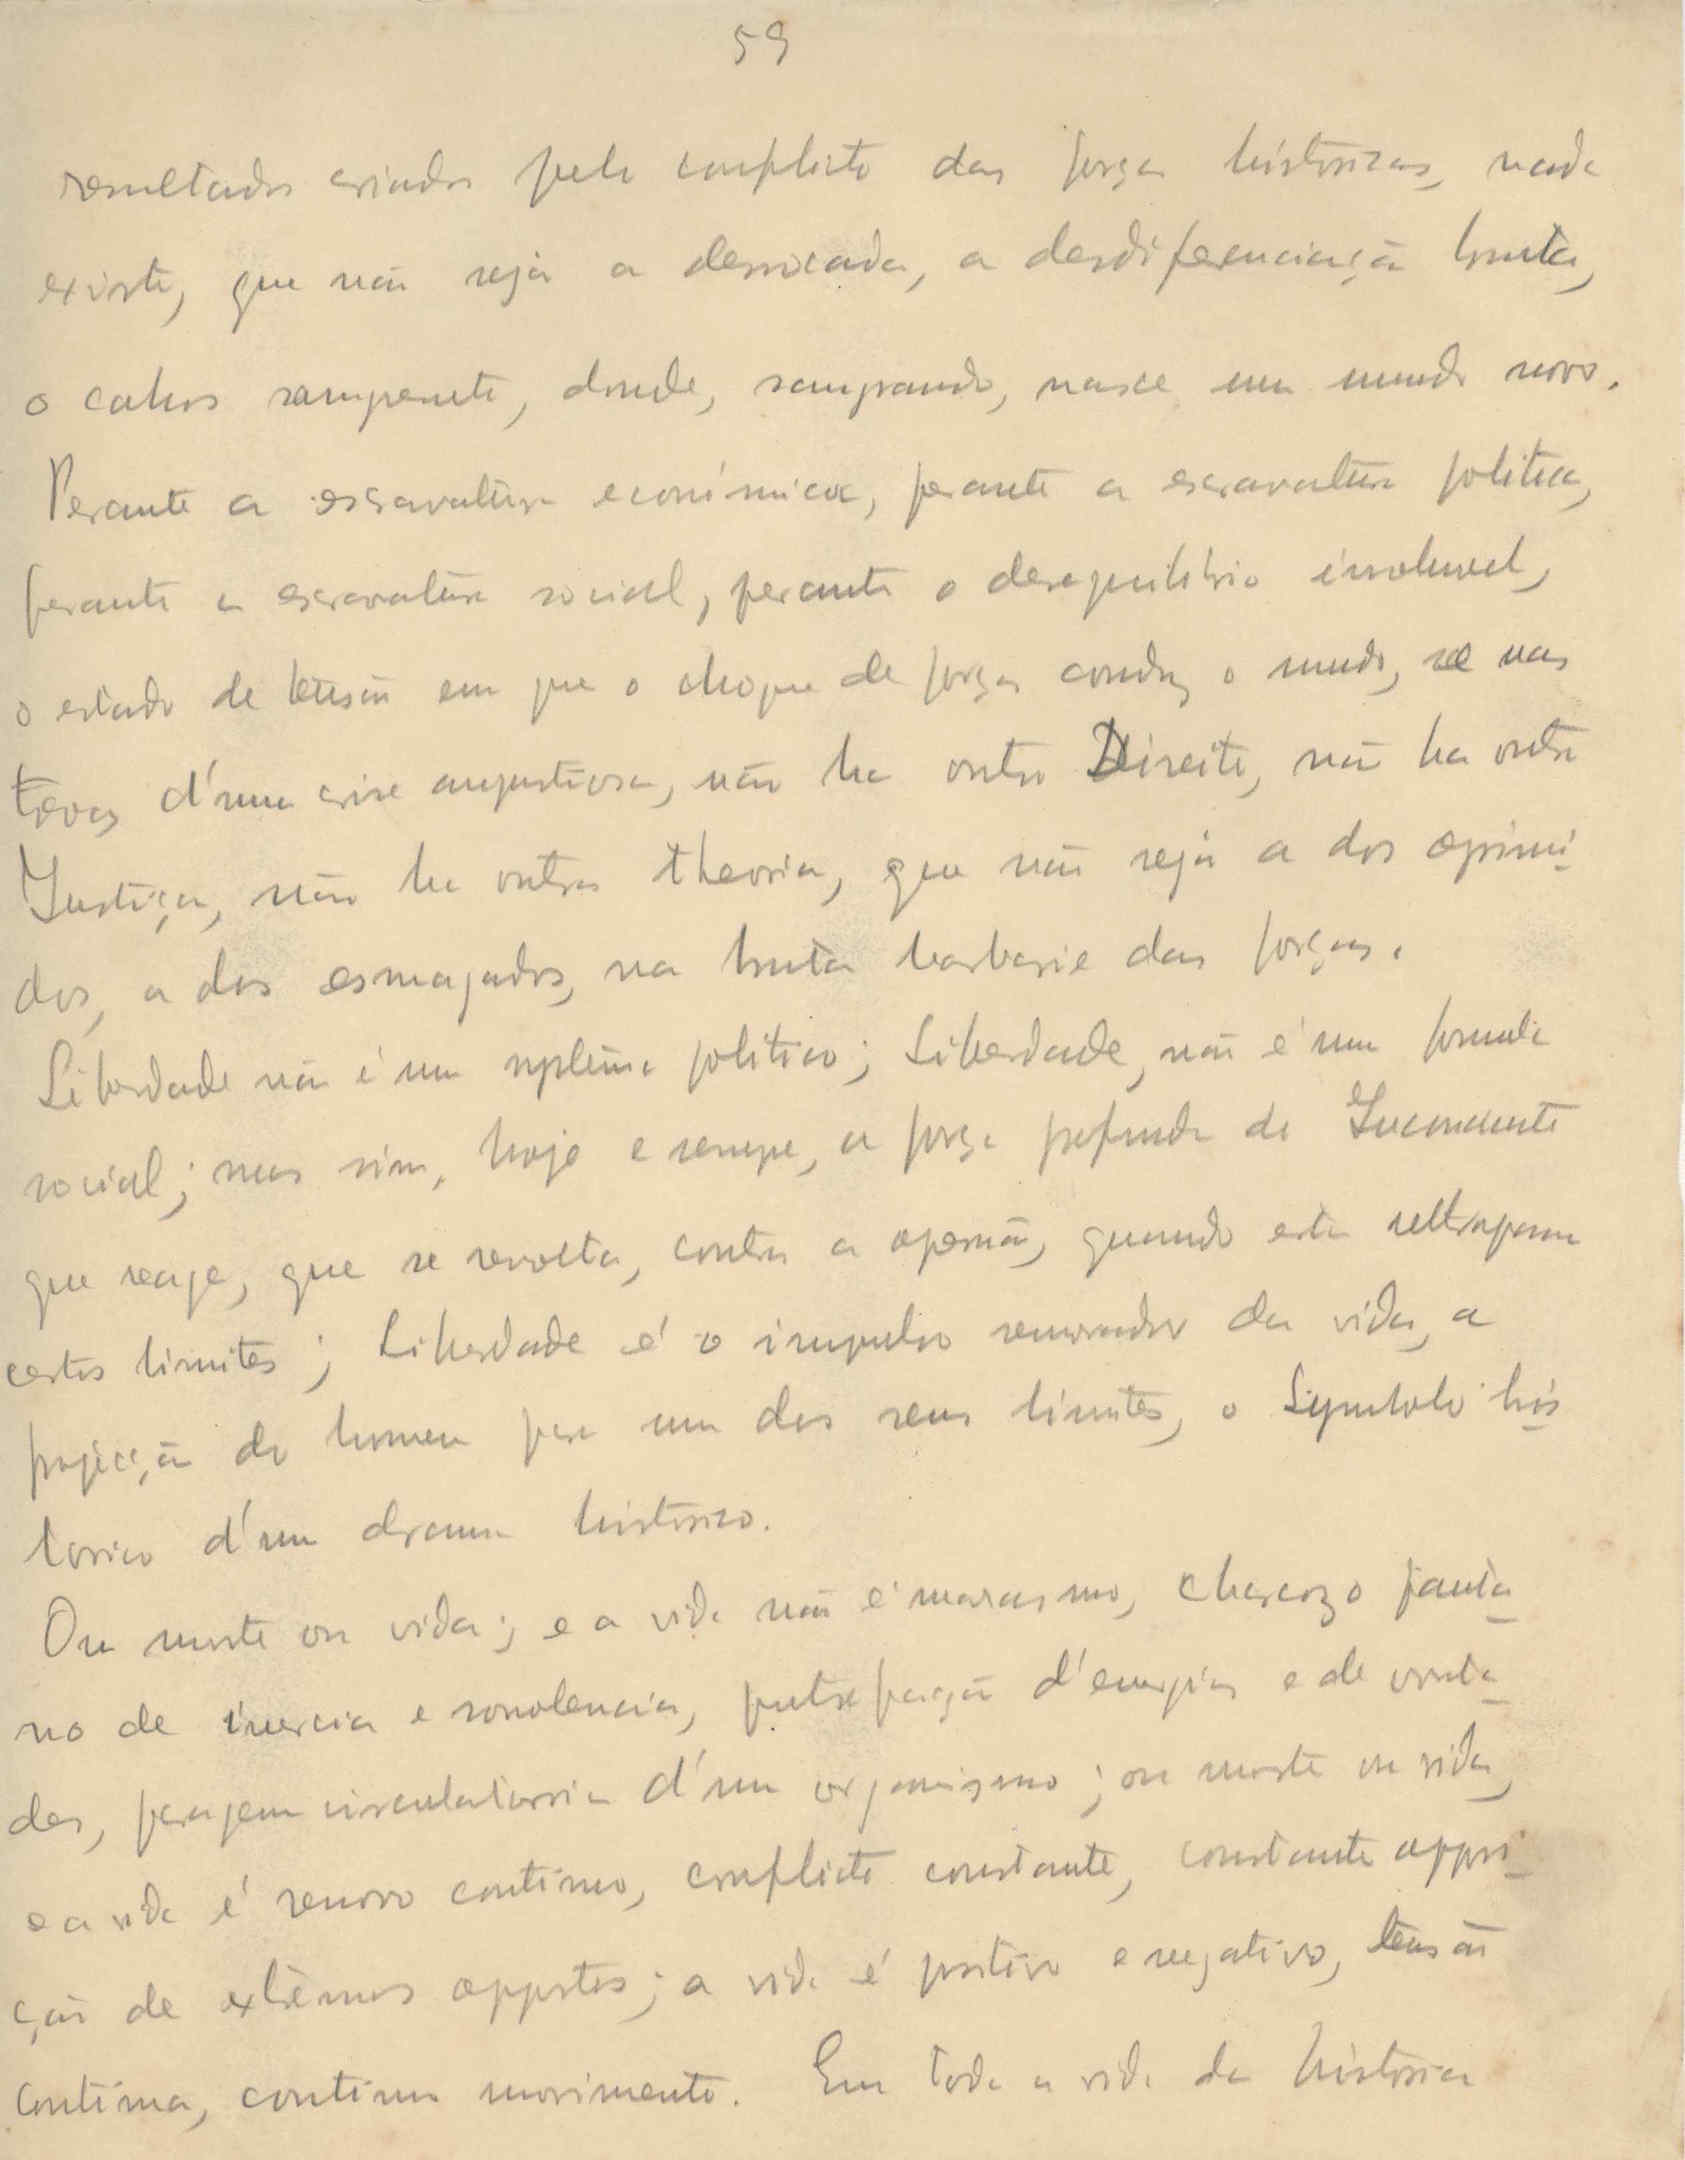 59
resultados criados pelo conflicto das forças históricas, nada
existe, que não seja a derrocada, a desdiferenciação bruta,
o cahos sangrento, donde, sangrando, nasce um mundo novo.
Perante a escravatura económica, perante a escravatura politica,
perante a escravatura social, perante o desequilibrio insoluvel,
o estado de tensão em que o choque de forças conduz o mundo, se nas
trevas d'uma crise angustiosa, não ha outro Direito, não ha outra
Justiça, não ha outra theoria, que não seja a dos oprimi-
dos, a dos esmagados, na bruta barbarie das forças.
Liberdade não é um systema politico; Liberdade, não é uma formula
social; mas sim, hoje e sempre, a força profunda do Inconsciente
que reage, que se revolta, contra a opressão, quando esta ultrapassa
certos limites; Liberdade é o impulso renovador da vida, a
projecção do homem para um dos seus limites, o Symbolo his-
torico d'um drama historico.
Ou morte ou vida; e a vida não é marasmo, charco panta-
no de inercia e sonolencia, putrefacção d'energias e de vonta-
des, paragem circulatoria d'um organismo; ou morte ou vida,
e a vida é renovo continuo, conflicto constante, constante opposi-
ção de extremos oppostos; a vida é positivo e negativo, tensão
continua, continuo movimento. Em toda a vida da historia